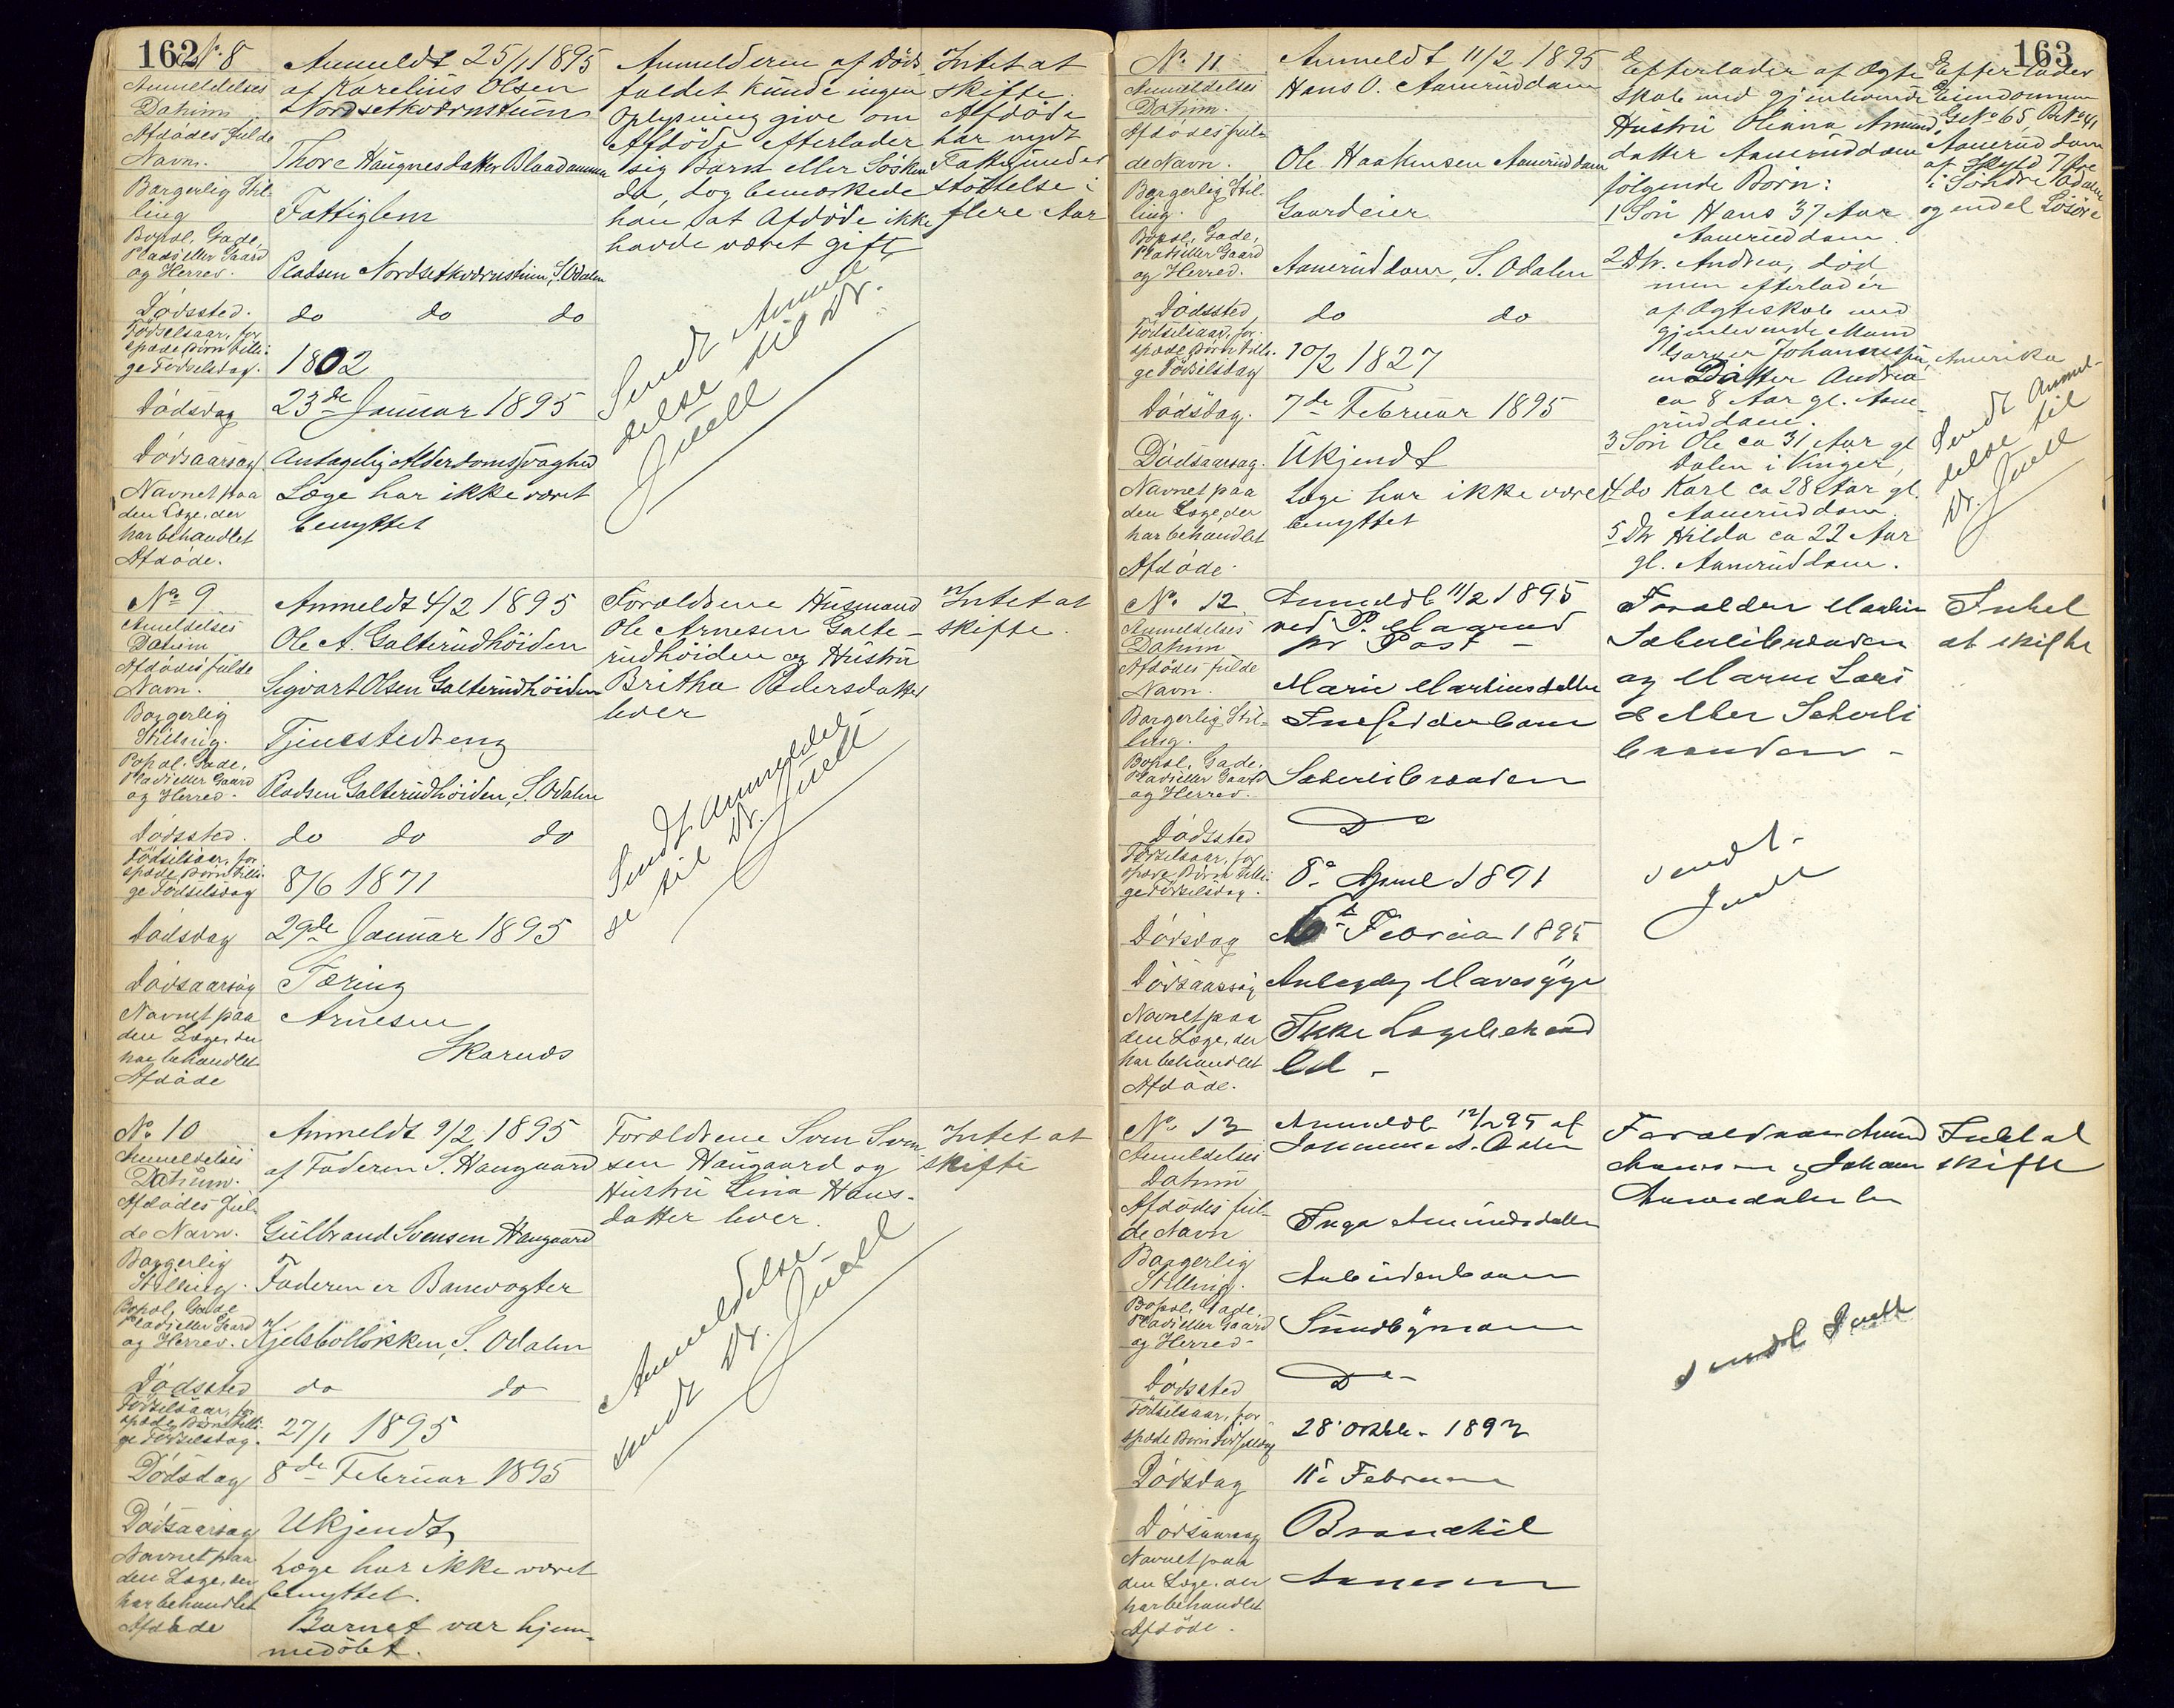 162
No 8
Anmeldelses
Datum
Afdødes fulde
Navn.
Borgerlig Stil-
ling
Bopæl, Gade,
Plads eller Gaard
og Herred.
Dødssted.
Fødselsaar, for
spæde Børn tilli-
ge Fødselsdag.
Dødsdag
Dødsaarsag
Navnet paa
den Læge, der
har behandlet
Afdøde.
Anmeldt 25/1 1895
af Karelius Olsen
Nordsetkværnstuen
Thore Haugnesdatter Blaadammen
Fattiglem
Pladsen Nordsetkværnstuen, S. Odalen
do do do
1802
23de Januar 1895
Antagelig Alderdomssvaghed
Læge har ikke været
benyttet
Anmelderen af Døds-
faldet kunde ingen
Oplysning give om
Afdøde efterlader
sig Barn eller Sösken-
de, dog bemærkede
han at Afdøde ikke
havde været gift
Sendt Anmel-
delse til Dr.
Juell
Intet at
skifte.
Afdøde
har nydt
Fattigunder
støttelse i
flere Aar
No 9
Anmeldelses
Datum
Afdødes fulde
Navn.
Borgerlig
Stilling.
Bopæl. Gade,
Plads eller Gaard
og Herred.
Dødssted.
Fødselsaar, for
spæde Børn tilli-
ge Fødselsdag
Dødsdag
Dødsaarsag
Navnet paa
den Læge, der
har behandlet
Afdøde
Anmeldt 4/2 1895
Ole A. Galterudhöiden
Sigvart Olsen Galterudhöiden
Tjenestedreng
Pladsen Galterudhöiden, S. Odalen
do do do
8/6 1871
29de Januar 1895
Tæring
Arnesen
Skarnes
Forældrene Husmand
Ole Arnesen Galte-
rudhöiden og Hustru
Britha Pedersdatter
lever
Sendt Anmeldel-
se til Dr. Juell
Intet at
skifte.
No 10
Anmeldelses
Datum.
Afdødes ful-
de Navn.
Borgerlig
Stilling.
Bopæl, Gade
Plads eller Gaard
og Herred.
Dødssted
Fødselsaar, for
spæde Børn tilli-
ge Fødselsdag.
Dødsdag
Dødsaarsag
Navnet paa
den Læge, der
har behandlet
Afdøde
Anmeldt 9/2 1895
af Faderen S. Haugaard
Gulbrand Svensen Haugaard
Faderen er Banevogter
Kjelsböllökken, S. Odalen
do do
27/1 1895
8de Februar 1895
Ukjendt
Læge har ikke været
benyttet.
Barnet var hjem-
medöbt.
Forældrene Sven Sven-
sen Haugaard og
Hustru Lina Hans-
datter lever.
Anmeldelse
sendt Dr. Juell
Intet at
skifte
163
No 11
Anmeldelses
Datum.
Afdødes ful-
de Navn.
Borgerlig Stil-
ling.
Bopæl, Gade,
Plads eller Gaard
og Herred.
Dødssted
Fødselsaar, for-
spæde Børn tilli-
ge Fødselsdag
Dødsdag.
Dødsaarsag.
Navnet paa
den Læge, der
har behandlet
Afdøde.
Anmeldt 11/2 1895
Hans O. Aaneruddam
Ole Haakensen Aaneruddam
Gaardeier
Aaneruddam, S. Odalen
do do
10/2 1827
7de Februar 1895
Ukjendt
Læge har ikke været
benyttet
Efterlader af Ægte
skab med gjenlevende
Hustru Oleana Amund
datter Aaneruddam
følgende Børn:
1 Søn Hans 37 Aar
Aaneruddam.
2 Dtr. Andrea, død
men efterlader
af Ægteskab med
gjenlevende Mand
Johannessen, Amerika
en Datter Andrea
ca 8 Aar gl. Aane-
ruddam.
3 Søn Ole ca 31 Aar gl
Dalen i Vinger,
4 do Karl ca 28 Aar gl.
Aaneruddam.
5 Dtr Hilda ca 22 Aar
gl. Aaneruddam.
Efterlader
Eiendommen
GNo 65 BNo 41
Aanerud dam
af Skyld 7 Øre
i Söndre Odalen
og endel Løsøre
Sendt Anmel-
delse til
Dr. Juell
No. 12
Anmeldelses
Datum
Afdødes fulde
Navn.
Borgerlig Stil-
ling.
Bopæl, Gade.
Plads eller Gaard
og Herred.
Dødssted
Fødselsaar, for
spæde Børn tilli-
ge Fødselsdag.
Dødsdag
Dødsaarsag
Navnet paa
den Læge, der
har behandlet
Afdøde.
Anmeldt 11/2 1895
ved P. Maarud
pr Post -
Marie Martinsdatter
Indsidderbarn
Sæterlibraaden
Do
8de April 1891
6te Februar 1895
Antagelig Mavesyge
Ikke Lægebehand
let -
Forælder Martin
Sæterlibraaden
og Maren Lars
datter Seterli
braaden -
sendt
Juell
Intet
at skifte
No 13
Anmeldelses
Datum
Afdødes ful-
de Navn
Borgerlig
Stilling.
Bopæl, Gade,
Plads eller Gaard
og Herred-
Dødssted
Fødselsaar, for
spæde Børn Fødselsdag
Dødsdag
Dødsaarsag
Navnet paa
den Læge, der
har behandlet
Afdøde.
Anmeldt 12/2 95 af
Inga Amundsdatter
Arbeiderbarn
Sundbymoen
Do -
28 Oktbr. 1893
11te Februar
Bronchit
Arnesen
Forældrene Amund
Intet at
skifte
sendt Juell